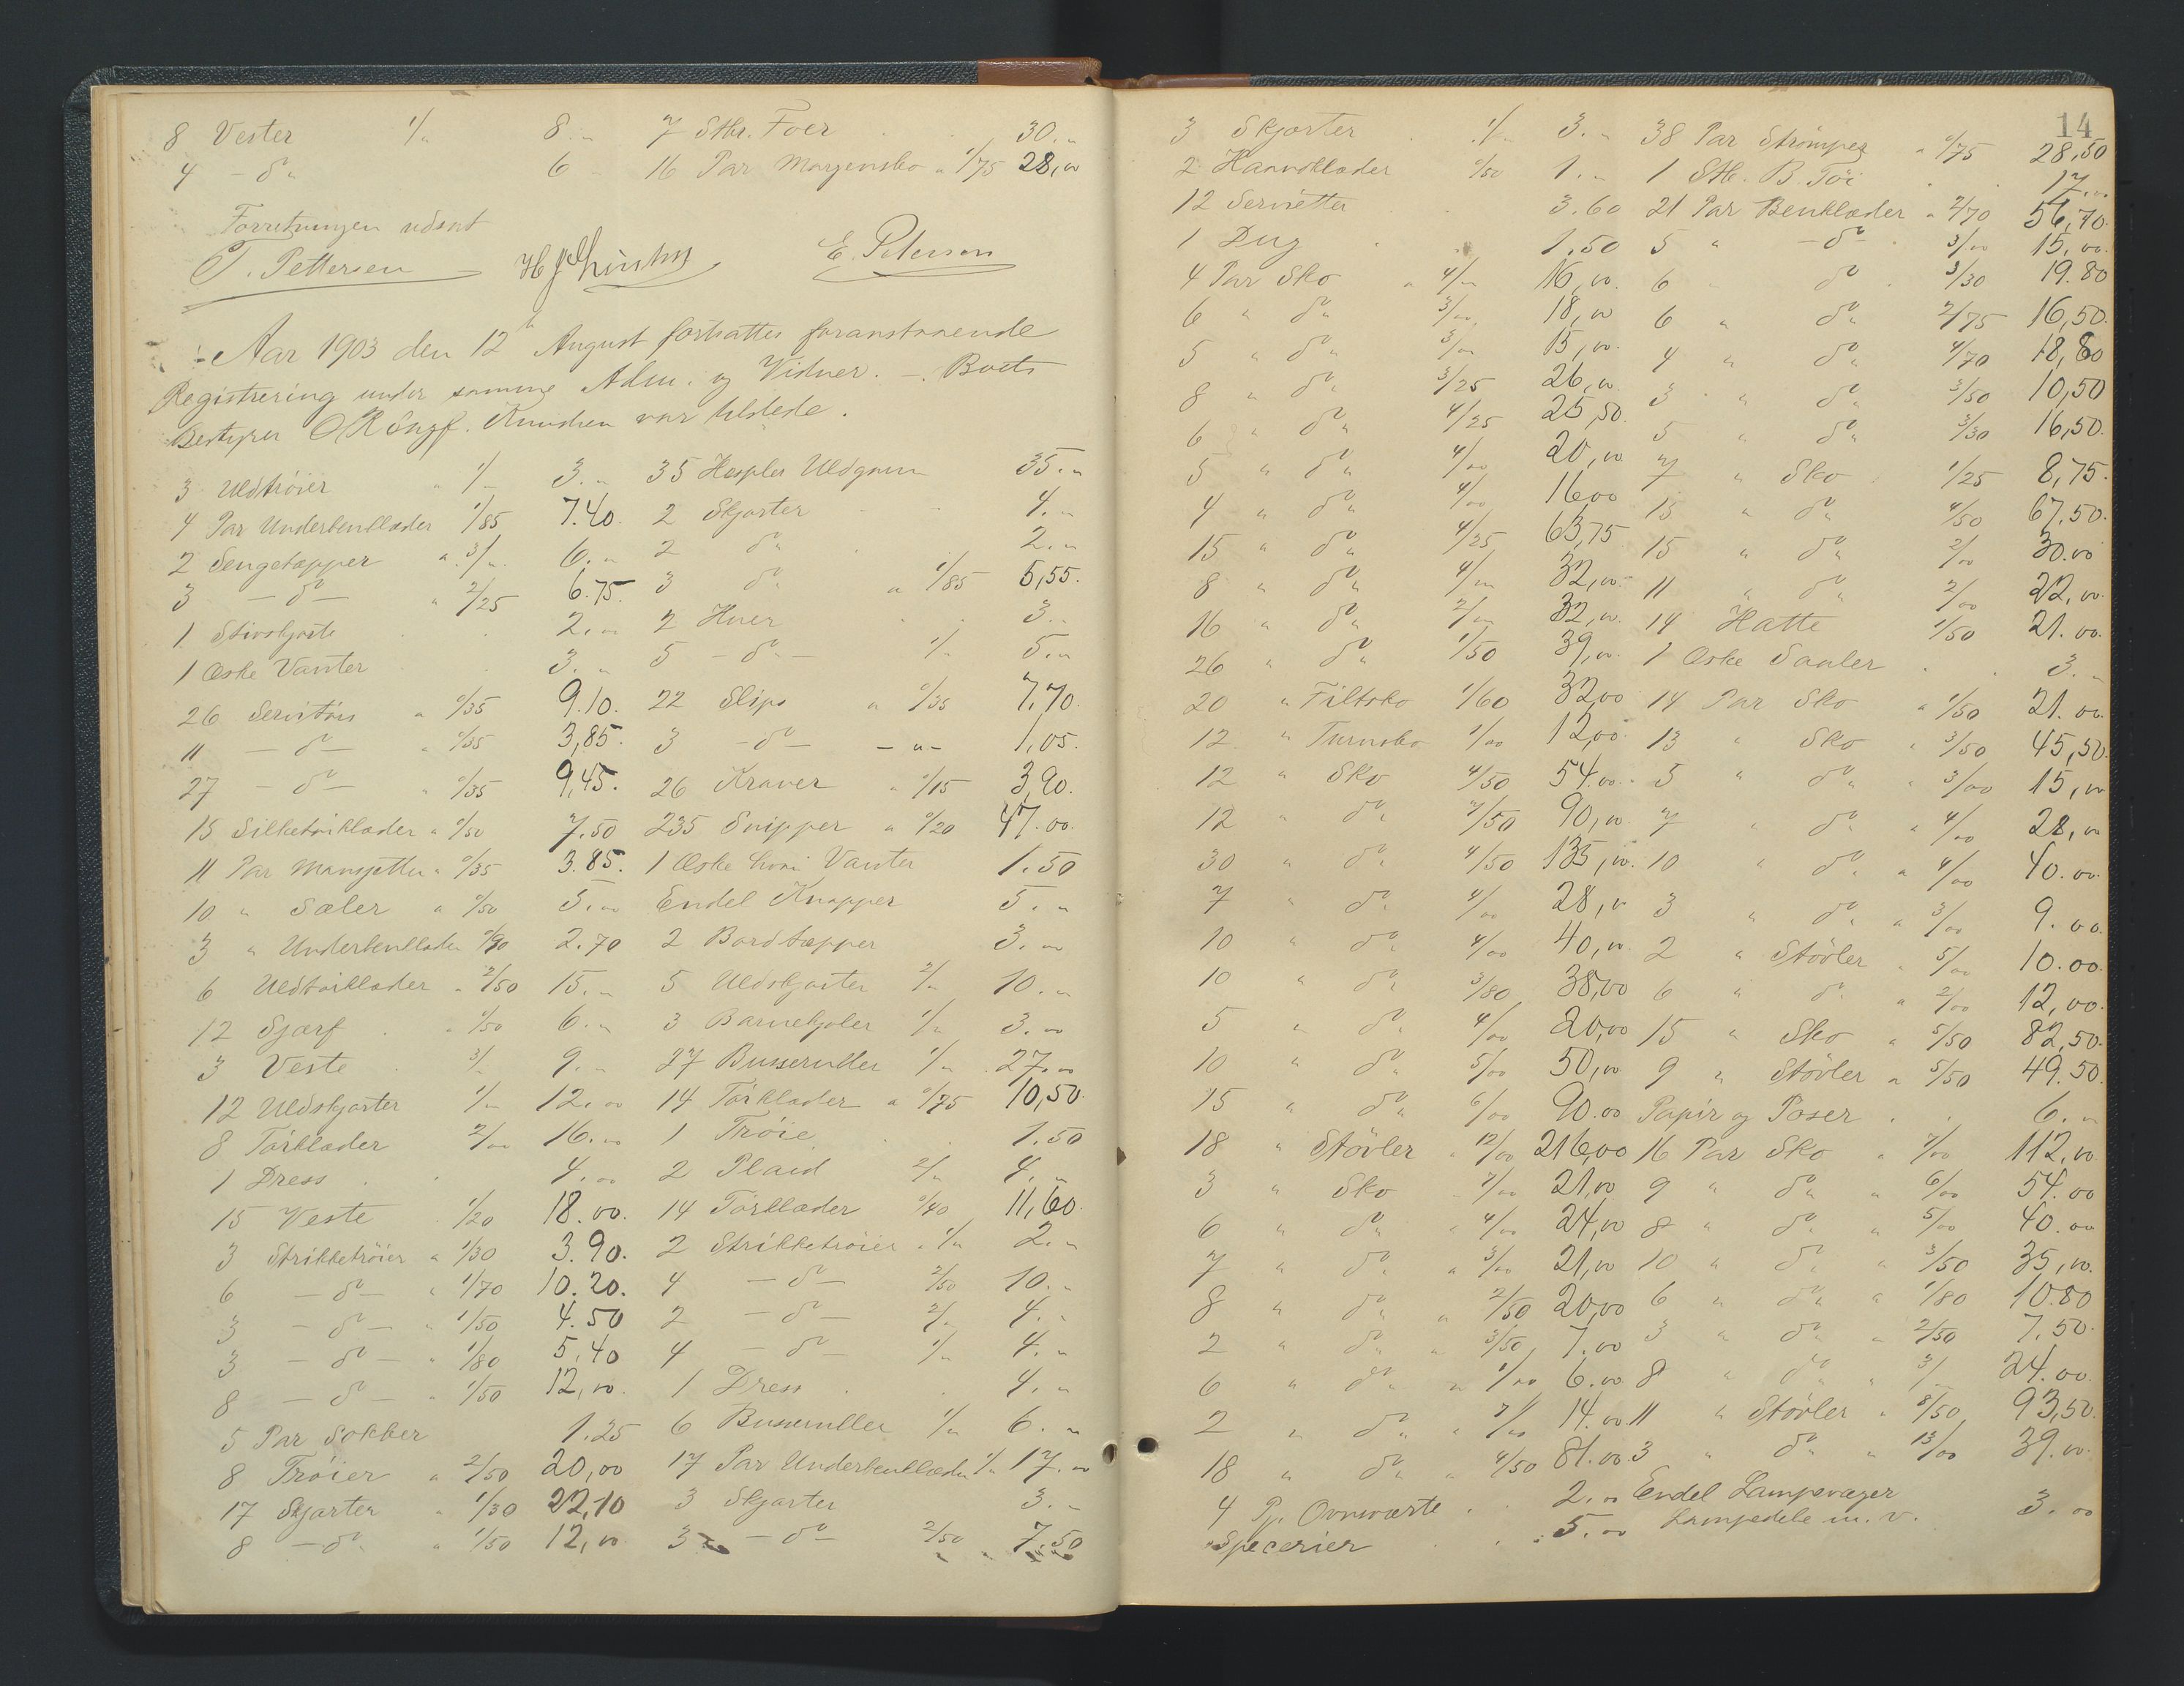 8 Vester 1/„ 8.„
4 -do„ 6„
7 Stkr. Foer 30.„
16 Par Morgensko a 1/75 28,00
Forretningen udsat
T. Pettersen E. Petersen
Aar 1903 den 12te August fortsattes foranstaaende
Registrering under samme Adm. og Vidner. -. Boets
Bestyrer Knudsen var tilstede.
3 Uldtröier a 1/- 3.„
4 Par Underbenklæder 1/85 7.40.
2 Sengetæpper a 3/„ 6.„
3 -do- a 2/25 6.75.
1 Stivskjorte 2.„
1 Æske Vanter 3.„
26 Servitörs a 0/35 9.10.
11 -do- a 0/35 3,85.
27 -do- a 0/35 9,45.
15 Silketörklæder a 0/50 7.50
11 Par Mansjetter a 0/35 3.85.
10 „ Sæler a 0/50 5.00
3 „ Underbenklæder 0/90 2.70
6 Uldtörklæder a 2/50 15.„
12 Sjærf a 0/50 6.„
3 Veste 3/- 9.„
12 Uldskjorter 1/„ 12.00
8 Törklæder 2/00 16.00
1 Dress 4.00
15 Veste 1/20 18.00.
3 Strikketröier a 1/30 3.90.
6 -do- a 1/70 10.20.
3 -do- a 1/50 4.50
3 -do- a 1/80 5,40
8 -do- a 1/50 12,00.
5 Par Sokker 1.25
8 Tröier a 2/50 20,00
17 Skjorter a 1/30 22,10
8 -do„ a 1/50 12,00
35 Hespler Uldgarn 35.„
2 Skjorter 4.„
2 do„ 2.„
3 do„ a 1/85 5,55.
2 Huer 3.„
5 -do- 1/„ 5.„
22 Slips a 0/35 7,70.
3 -do- -„- 1,05.
26 Kraver a 0/15 3,90.
235 Snipper a 0/20 47.00.
1 Æske hvi Vanter 1.50
Endel Knapper 5.„
2 Bordtæpper 3.00
5 Uldskjorter 2/„ 10.„
3 Barnekjoler 1/„ 3.00
27 Busseruller 1/„ 27.00
14 Törklæder a 0/75 10,50.
1 Tröie 1.50
2 Plaid 2/„ 4.„
14 Törklæder 0/40 11,60.
2 Strikketröier a 1/„ 2.„
4 -do- 2/50 10.„
2 -do- 2/„ 4.„
4 -do- 1/„ 4.„
1 Dress 4.„
6 Busseruller 1/„ 6.„
17 Par Underbenklæder 1/„ 17.00
3 Skjorter 3.„
3 -do- 2/50 7.50
14
3 Skjorter 1/„ 3.„
2 Haandklæder 0/50 1.„
12 Servietter 3.60
1 Dug 1.50
4 Par Sko a 4/„ 16,00.
6 „ do„ 3/00 18,00
5 „ do„ 3/„ 15,00.
8 „ do„ 3/25 26,00.
6 „ do„ 4/25 25,50.
5 „ do„ 4/00 20,00
4 „ do„ 4/00 16.00
15 „ do„ 4/25 63,75
8 „ do„ 4/00 32,00.
16 „ do„ 2/00 32,00.
26 „ do„ 1/50 39,00.
20 „ Filtsko 1/60 32,00
12 „ Turnsko 1/00 12,00.
12 „ Sko 4/50 54.00.
12 „ do„ 7/50 90,00.
30 „ do„ 4/50 135,00.
7 „ do„ 4/00 28,00
10 „ do„ 4/00 40,00.
10 „ do„ 3/80 38,00
5 „ do„ 4/00 20,00
10 „ do„ 5/00 50,00
15 „ do„ 6/00 90.00
18 „ Stövler a 12/00 216,00
3 „ Sko 7/00 21,00
6 „ do„ a 4/00 24,00
7 „ do„ a 3/00 21,00
8 „ do„ a 2/50 20,00
2 „ do„ a 3/50 7.00
6 „ do„ a 1/00 6.00
2 „ do„ a 7/00 14.00
18 „ do„ a 4/50 81.00.
4 Pp. Ovnsværte 2.00
Specerier 5.00
38 Par Strömper a 0/75 28,50
1 Stk. B. Töi 17.00
21 Par Benklæder a 2/70 56,70.
5 „ -do- 3/00 15,00.
6 do 3/30 19.80
6 „ do„ 2/75 16,50.
4 „ do„ 4/70 18,80
3 „ do„ 3/50 10,50
5 „ do„ 3/30 16,50.
7 „ Sko 1/25 8,75.
15 „ do„ 4/50 67,50.
15 „ do„ 2/00 30.00
11 „ do„ 2/00 22,00.
14 Hatte 1/50 21.00.
1 Æske Saaler 3.„
14 Par Sko a 1/50 21.00.
13 „ Sko a 3/50 45,50.
5 „ do„ a 3/00 15,00
7 „ do„ a 4/00 28,00
10 „ do„ a 4/00 40.00.
3 „ do„ a 3/00 9.00.
2 „ Stövler a 5/00 10.00.
6 „ do„ a 2/00 12,00.
15 „ Sko a 5/50 82,50.
9 „ Stövler a 5/50 49.50.
Papir og Poser 6.„
16 Par Sko a 7/00 112,00
9 „ do„ a 6/00 54.00
8 „ do„ a 5/00 40.00
10 „ do„ a 3/50 35,00.
6 „ do„ a 1/80 10.80
3 „ do„ a 2/50 7.50.
8 „ do„ a 3/- 24.00.
11 „ Stövler a 8/50 93,50.
3 „ do„ a 13/00 39.00.
Endel Lampevæger
Lampedele m. v. 3.00